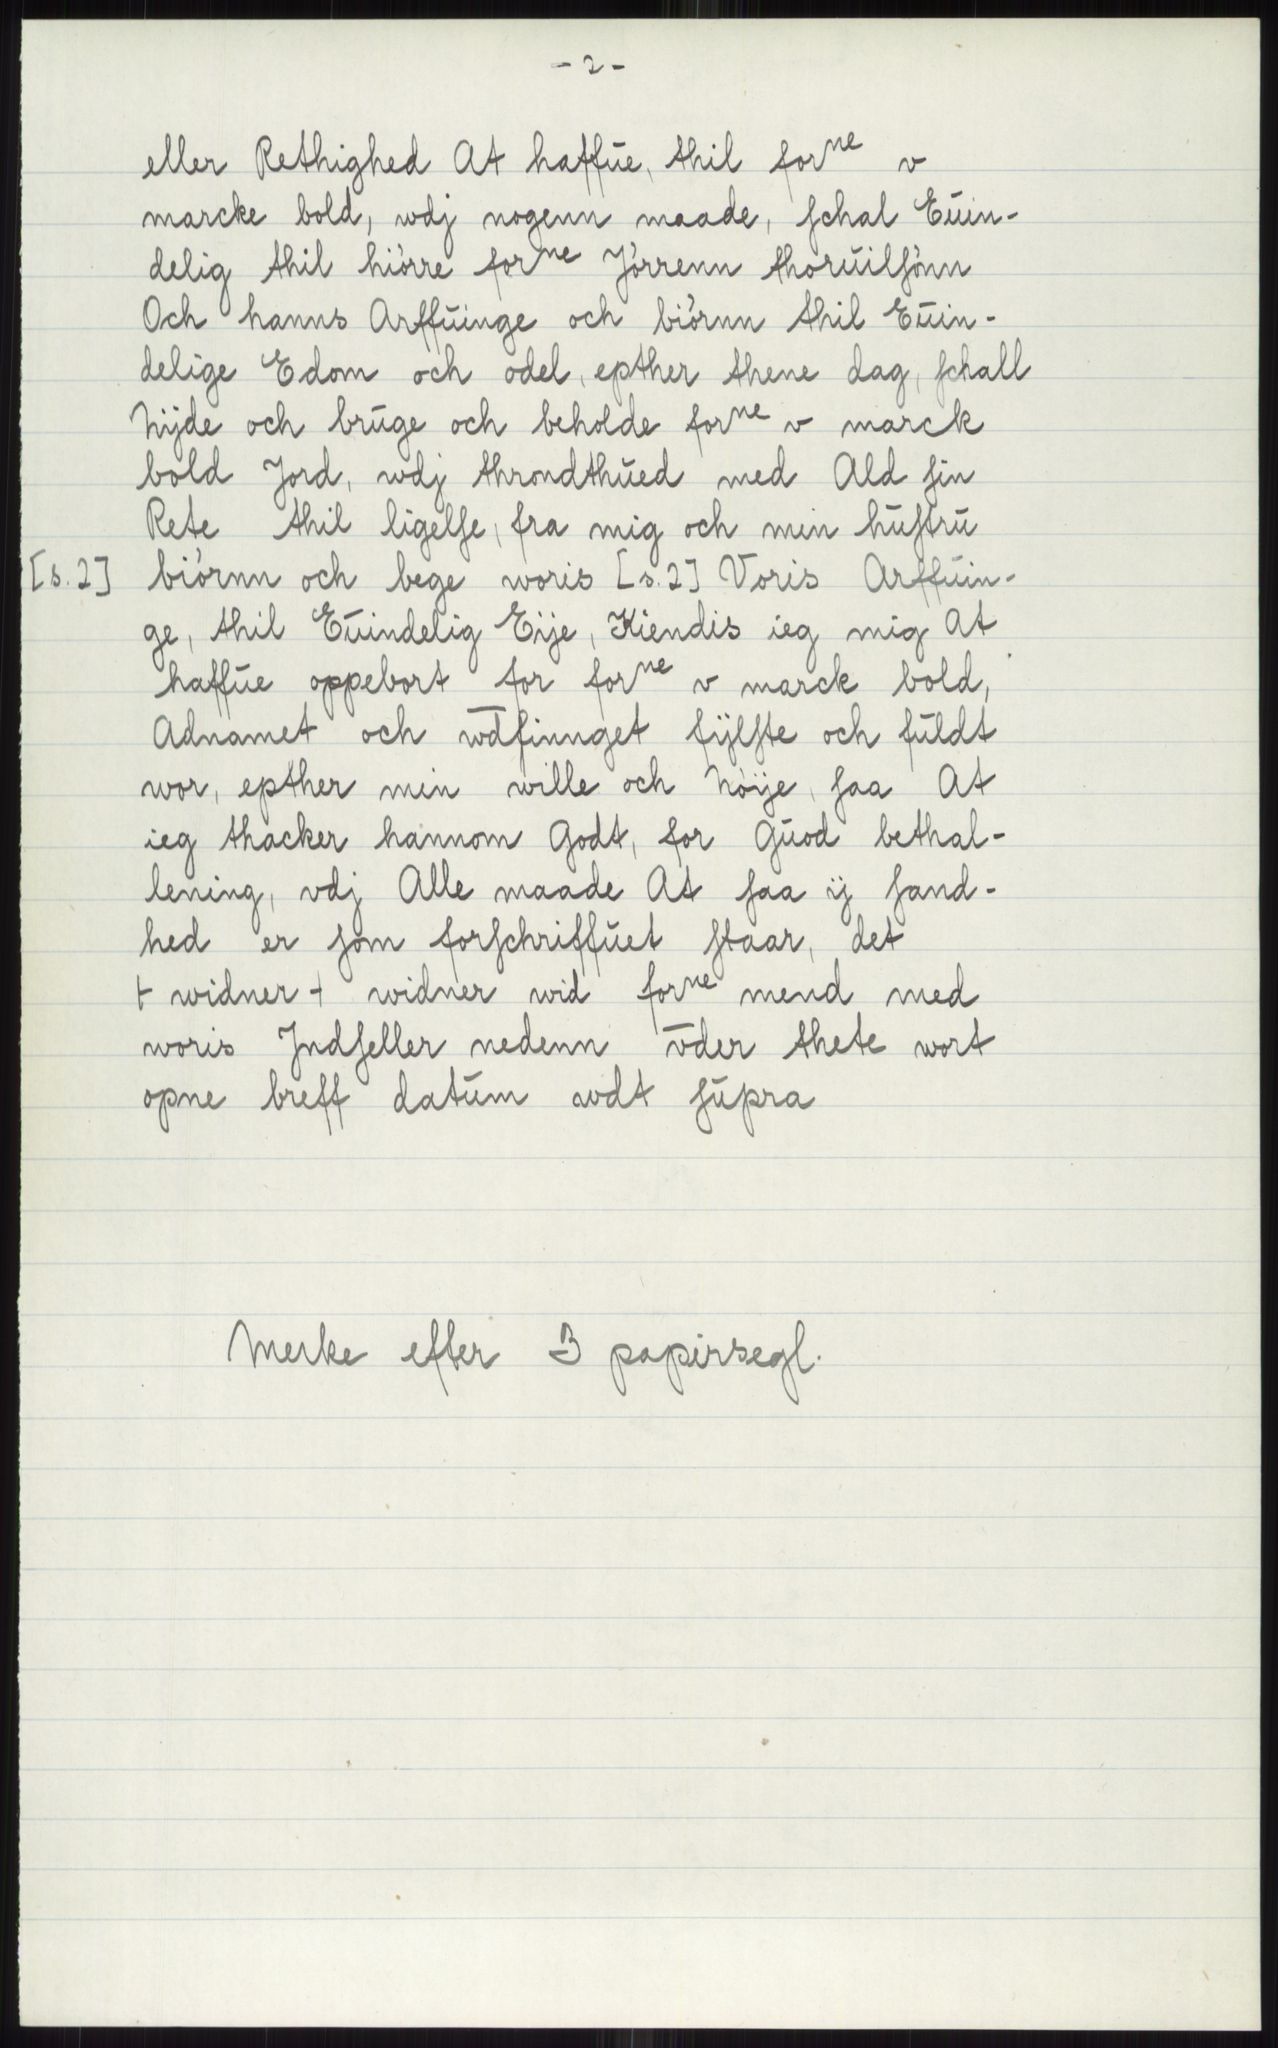 - 2 -
eller Rethighed At haffūe, thil forne v
marcke bold, wdj nogenn maade, schal Eūin-
delig thil hiörre forne Jörrenn thorūilsönn
Och hanns Arffūinge och biörnn thil Eūin-
delige Edom och odel, epther thene dag, schall
Nÿde och brūge och beholde forne v marck
bold Jord, wdj throndthūed med Ald sin
Rete thil ligelse, fra mig och min hūstrū
[s. 2] biörnn och bege woris [s. 2] Voris Arffūin-
ge, thil Eūindelig Eije, Kiendis ieg mig At
haffūe oppebort for forne v marck bold,
Adnamet och w̄dfinnget fÿlste och fūldt
wor, epther min wille och Nöije, saa At
ieg thacker hannom Godt, for Gūod bethal-
lening, vdj Alle maade At saa ÿ sand-
hed er som forschriffūet staar, det
+ widner + widner wid forne mend med
woris Jndseller nedenn v̄der thete wort
opne breff datūm wdt sūpra
Merke efter 3 papirsegl.